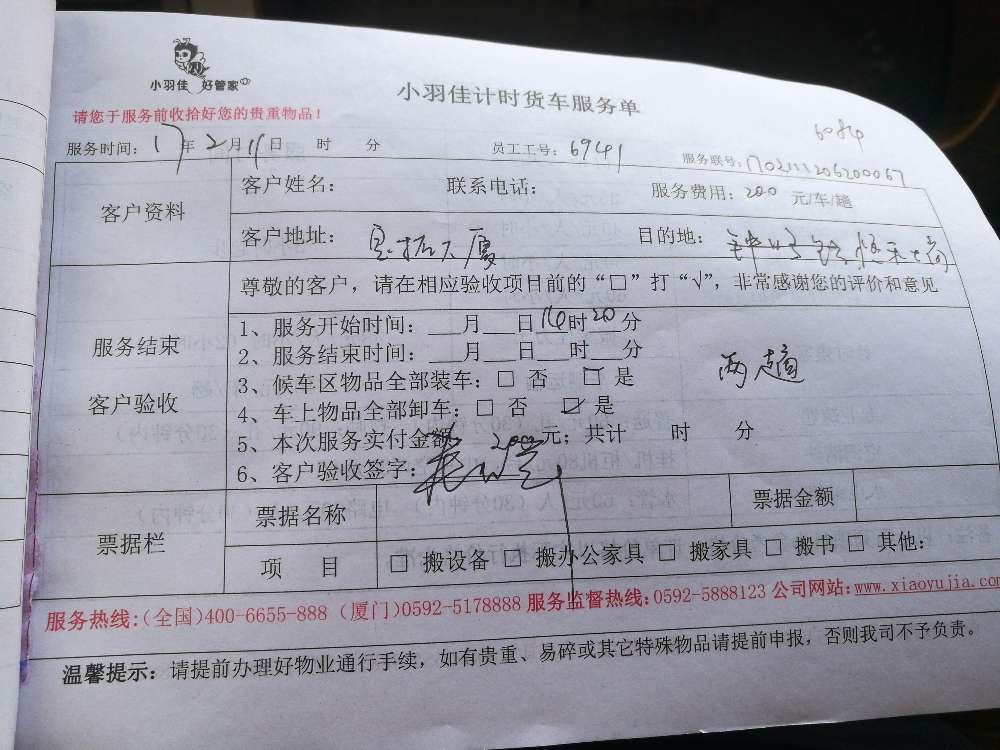 小羽佳 好管家
小羽佳计时货车服务单
请您于服务前收拾好您的贵重物品！
6084
服务时间：17年2月11日 时 分 员工工号：6941 服务联号：1702111206200067
客户资料
客户姓名： 联系电话： 服务费用：200 元/车/趟
客户地址： 大厦 目的地：
尊敬的客户，请在相应验收项目前的“□”打“√”，非常感谢您的评价和意见
服务结束
客户验收
1、服务开始时间：___月___日16时20分
2、服务结束时间：___月___日___时___分
3、候车区物品全部装车：□ 否 □ 是
两趟
4、车上物品全部卸车：□ 否 ☑ 是
5、本次服务实付金额 200元；共计 时 分
6、客户验收签字：
票据栏
票据名称 票据金额
项 目 □ 搬设备 □ 搬办公家具 □ 搬家具 □ 搬书 □ 其他：
服务热线:(全国)400-6655-888 (厦门)0592-5178888 服务监督热线:0592-5888123 公司网站:www.xiaoyujia.com
温馨提示：请提前办理好物业通行手续，如有贵重、易碎或其它特殊物品请提前申报，否则我司不予负责。